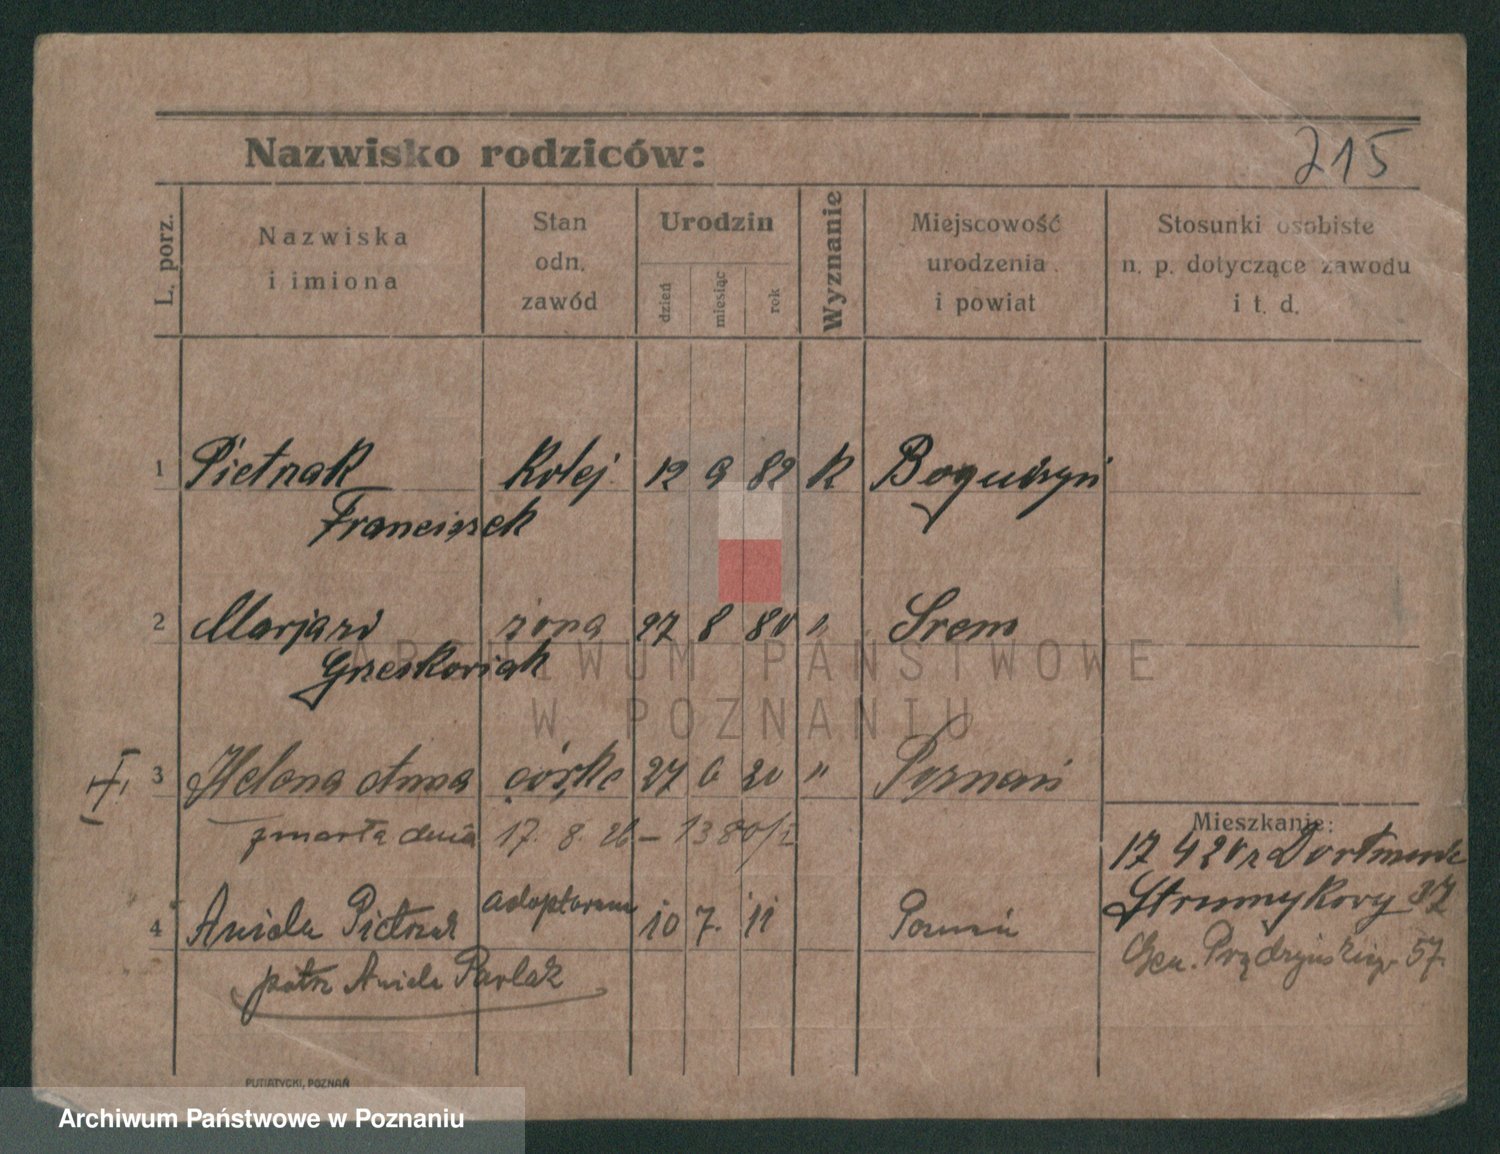 215
Nazwisko rodziców:
L. porz.
Nazwiska
i imiona
Stan
odn.
zawód
Urodzin
dzień
miesiąc
rok
Wyznanie
Miejscowość
urodzenia
i powiat
Stosunki osobiste
n. p. dotyczące zawodu
i t. d.
1 Pietnak Kolej 12 9 82 K
Franciszek
2 żona 27 8 80 " Śrem
3 Helena Anna córka 27 6 20 " Poznań
zmarła dnia 17. 8. 26 – 1380/I
Mieszkanie:
17 4 20 z Dortmund
4 Aniela 10 7. 11 Poznań
patrz Aniela Pawlak
Gen. Prądzyńskiego 57
ARCHIWUM PAŃSTWOWE
W POZNANIU
PUTIATYCKI, POZNAŃ
Archiwum Państwowe w Poznaniu